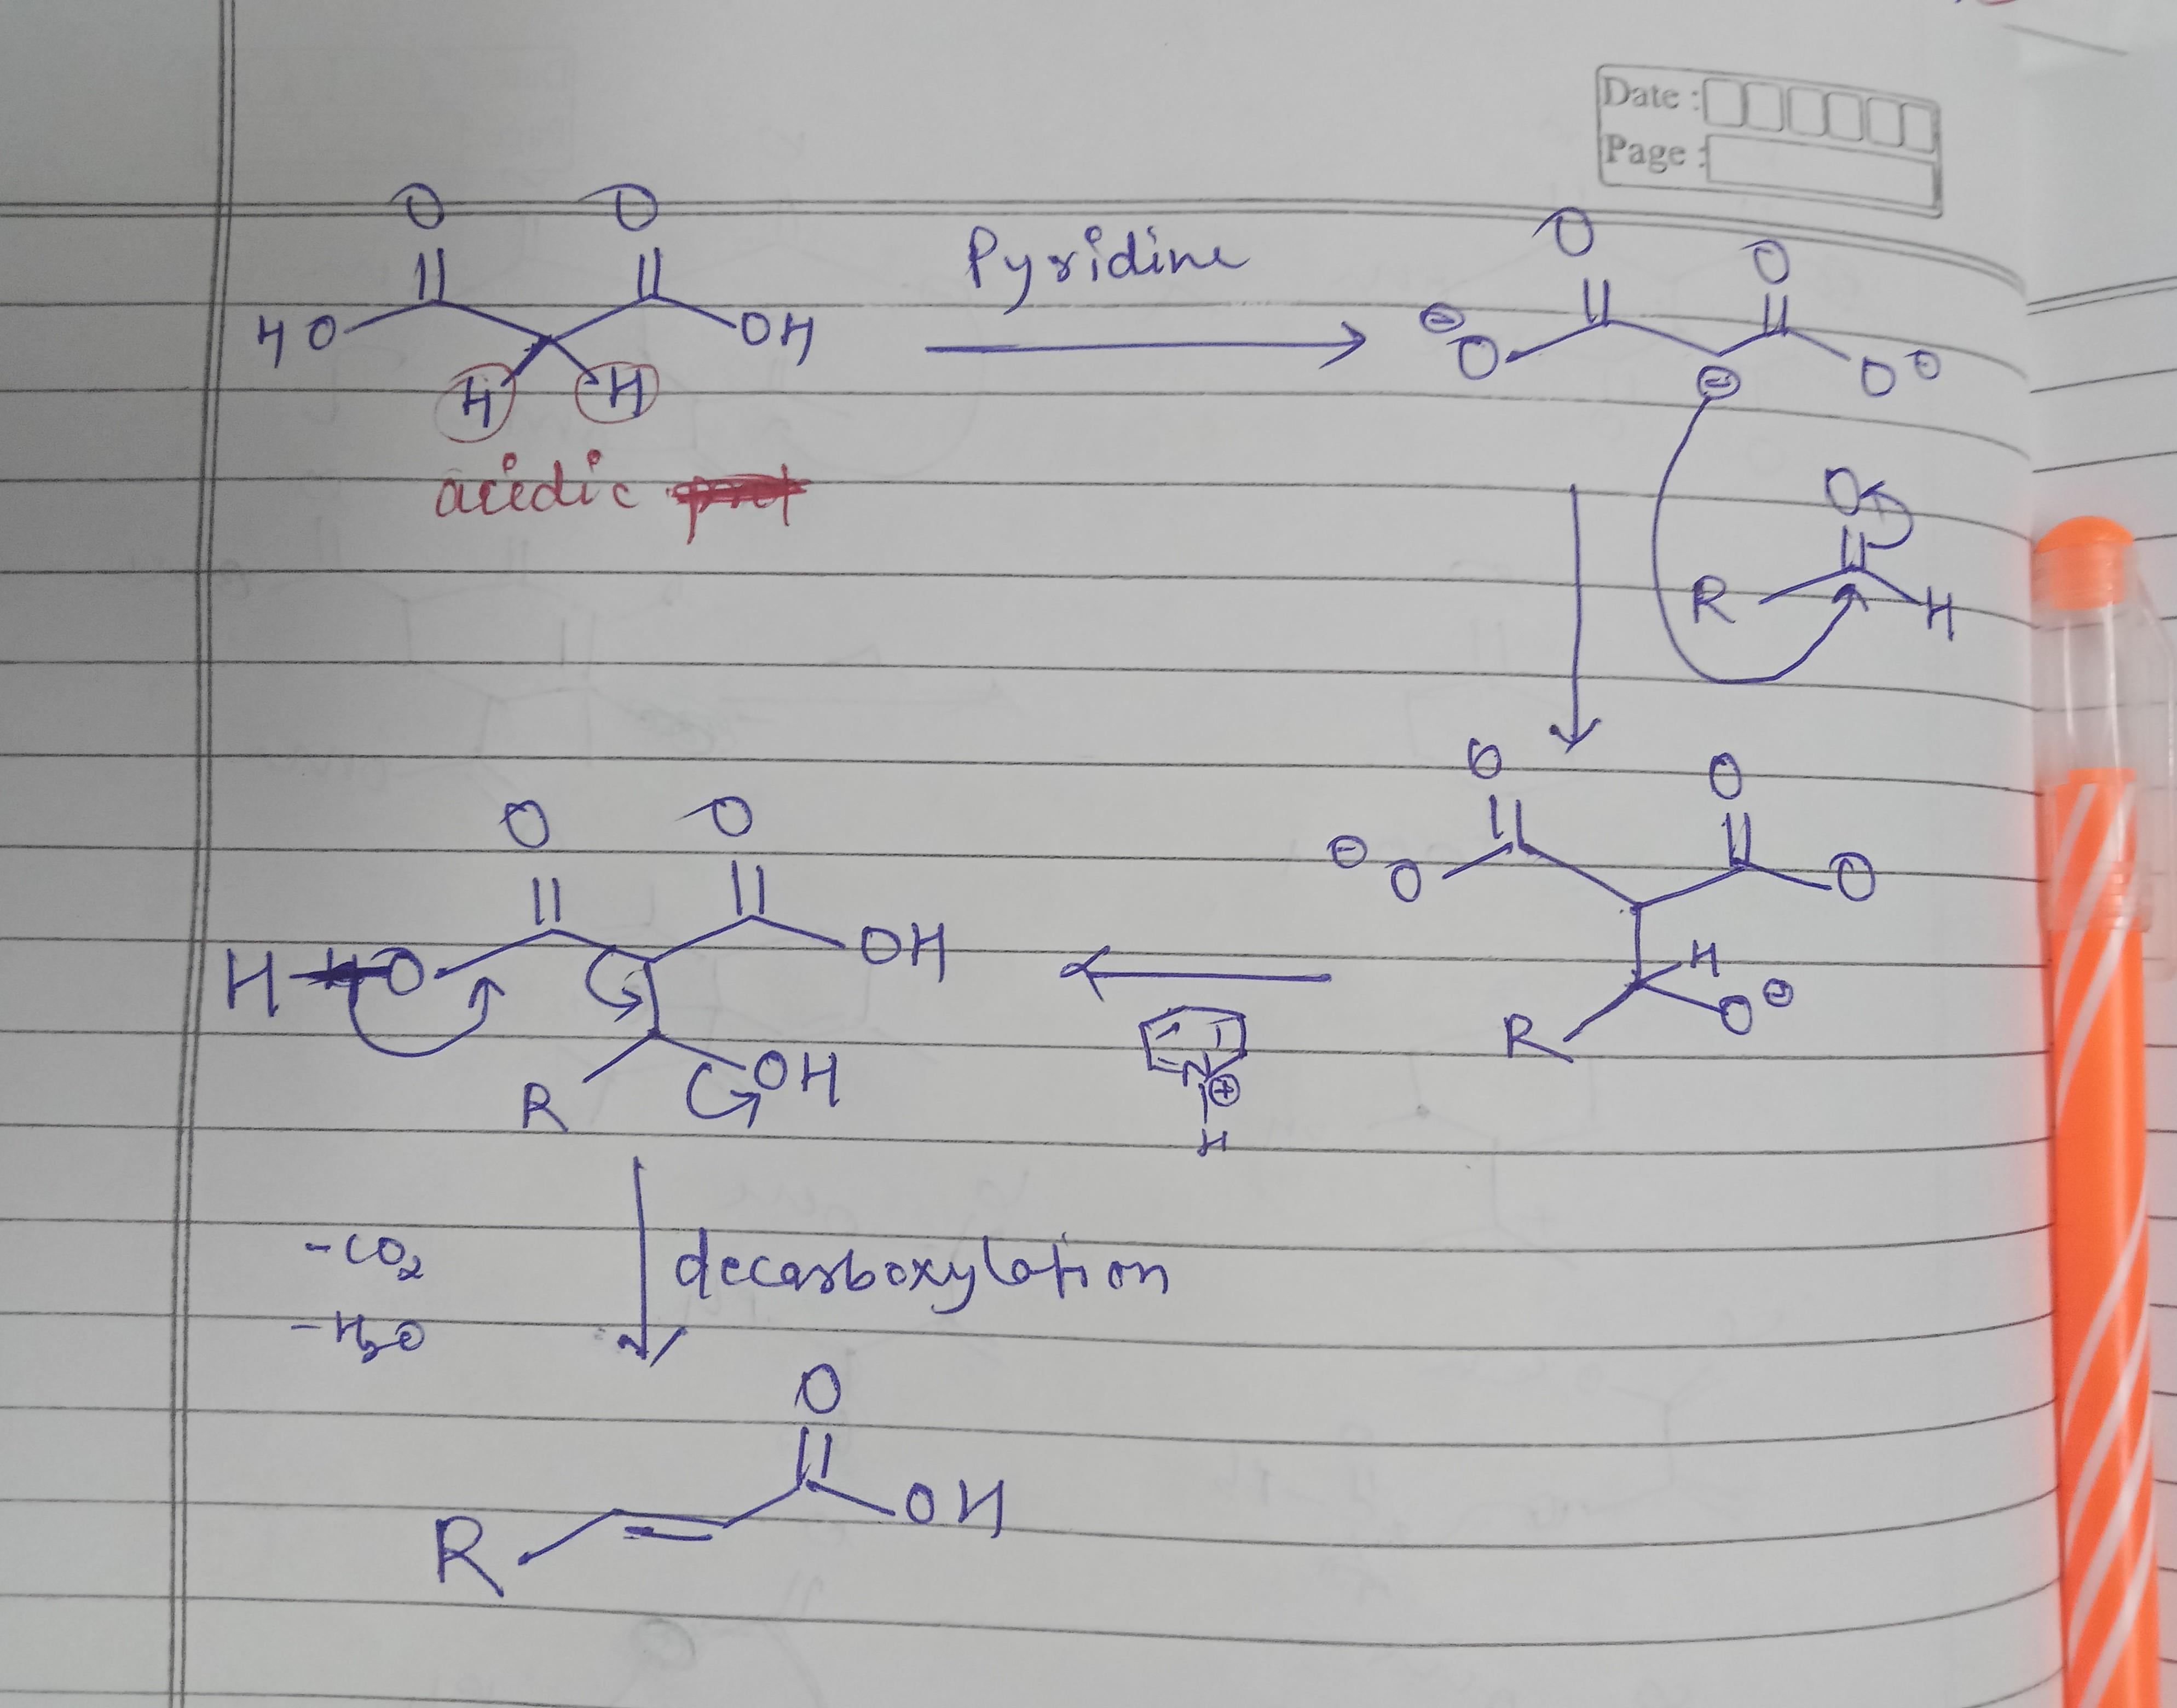 Date :
Page :
O O
HO OH
H H
acidic
Pyridine
O O
⊖O O⊖
⊖
O
R H
O O
⊖O O
H
R O⊖
N⊕
H
O O
H O OH
R OH
-CO2
-H2O
decarboxylation
O
R OH